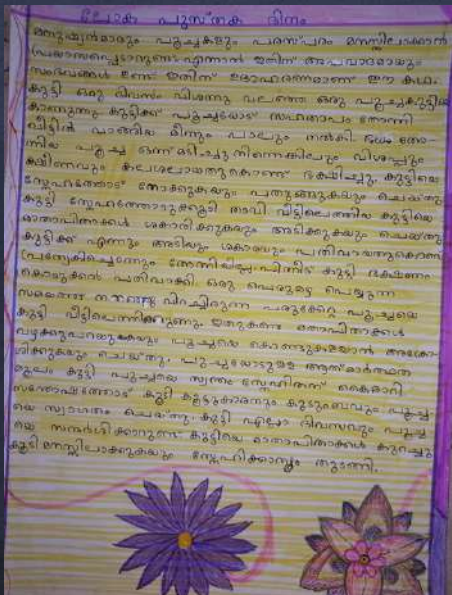 ലോക പുസ്തക ദിനം
മനുഷ്യൻമാരും പൂച്ചകളും പരസ്പരം മനസ്സിലാക്കാൻ
പ്രയാസപ്പെടാറുണ്ട് എന്നാൽ ഇതിന് അപവാദമായും
സംഭവങ്ങൾ ഉണ്ട് ഇതിന് ഉദാഹരണമാണ് ഈ കഥ.
കുട്ടി ഒരു ദിവസം വിശന്നു വലഞ്ഞ ഒരു പൂച്ചകുട്ടിയെ
കാണുന്നു. കുട്ടിക്ക് പൂച്ചയോട് സഹതാപം തോന്നി
വീട്ടിൽ വാങ്ങിയ മീനും പാലും നൽകി. തോ-
ന്നിയ പൂച്ച ഒന്ന് മടിച്ചു നിന്നെങ്കിലും വിശപ്പും
ക്ഷീണവും കലശലായതുകൊണ്ട് ഭക്ഷിച്ചു. കുട്ടിയെ
സ്നേഹത്തോട് നോക്കുകയും പതുങ്ങുകയും ചെയ്തു
കുട്ടി സ്നേഹത്തോടുക്കൂടി വീട്ടിലെത്തിയ കുട്ടിയെ
മാതാപിതാക്കൾ ശകാരിക്കുകയും അടിക്കുകയും ചെയ്തു
കുട്ടിക്ക് എന്നും അടിയും ശകാരവും പതിവായതുകൊണ്ട്
പ്രത്യേകിച്ചൊന്നും തോന്നിയില്ല. പിന്നീട് കുട്ടി ഭക്ഷണം
കൊടുക്കൽ പതിവാക്കി ഒരു പെരുമഴ പെയ്യുന്ന
സമയത്ത് വിറച്ചിരുന്ന പരുക്കേറ്റ പൂച്ചയെ
കുട്ടി വീട്ടിലെത്തിക്കുന്നു. ഇതുകണ്ട മാതാപിതാക്കൾ
വഴക്കുപറയുകയും പൂച്ചയെ കൊണ്ടുകളയാൻ ആക്രോ-
ശിക്കുകയും ചെയ്തു. പൂച്ചയോടുള്ള ആത്മാർത്ഥത
മൂലം കുട്ടി പൂച്ചയെ സ്വന്തം സ്നേഹിതന് കൈമാറി
സന്തോഷത്തോട് കൂടി കൂട്ടുകാരനും കുടുംബവും പൂച്ച-
യെ സ്വാഗതം ചെയ്തു. കുട്ടി എല്ലാ ദിവസവും പൂച്ച-
യെ സന്ദർശിക്കാറുണ്ട് കുട്ടിയെ മാതാപിതാക്കൾ കുറച്ചു
കൂടി മനസ്സിലാക്കുകയും സ്നേഹിക്കാനും തുടങ്ങി.